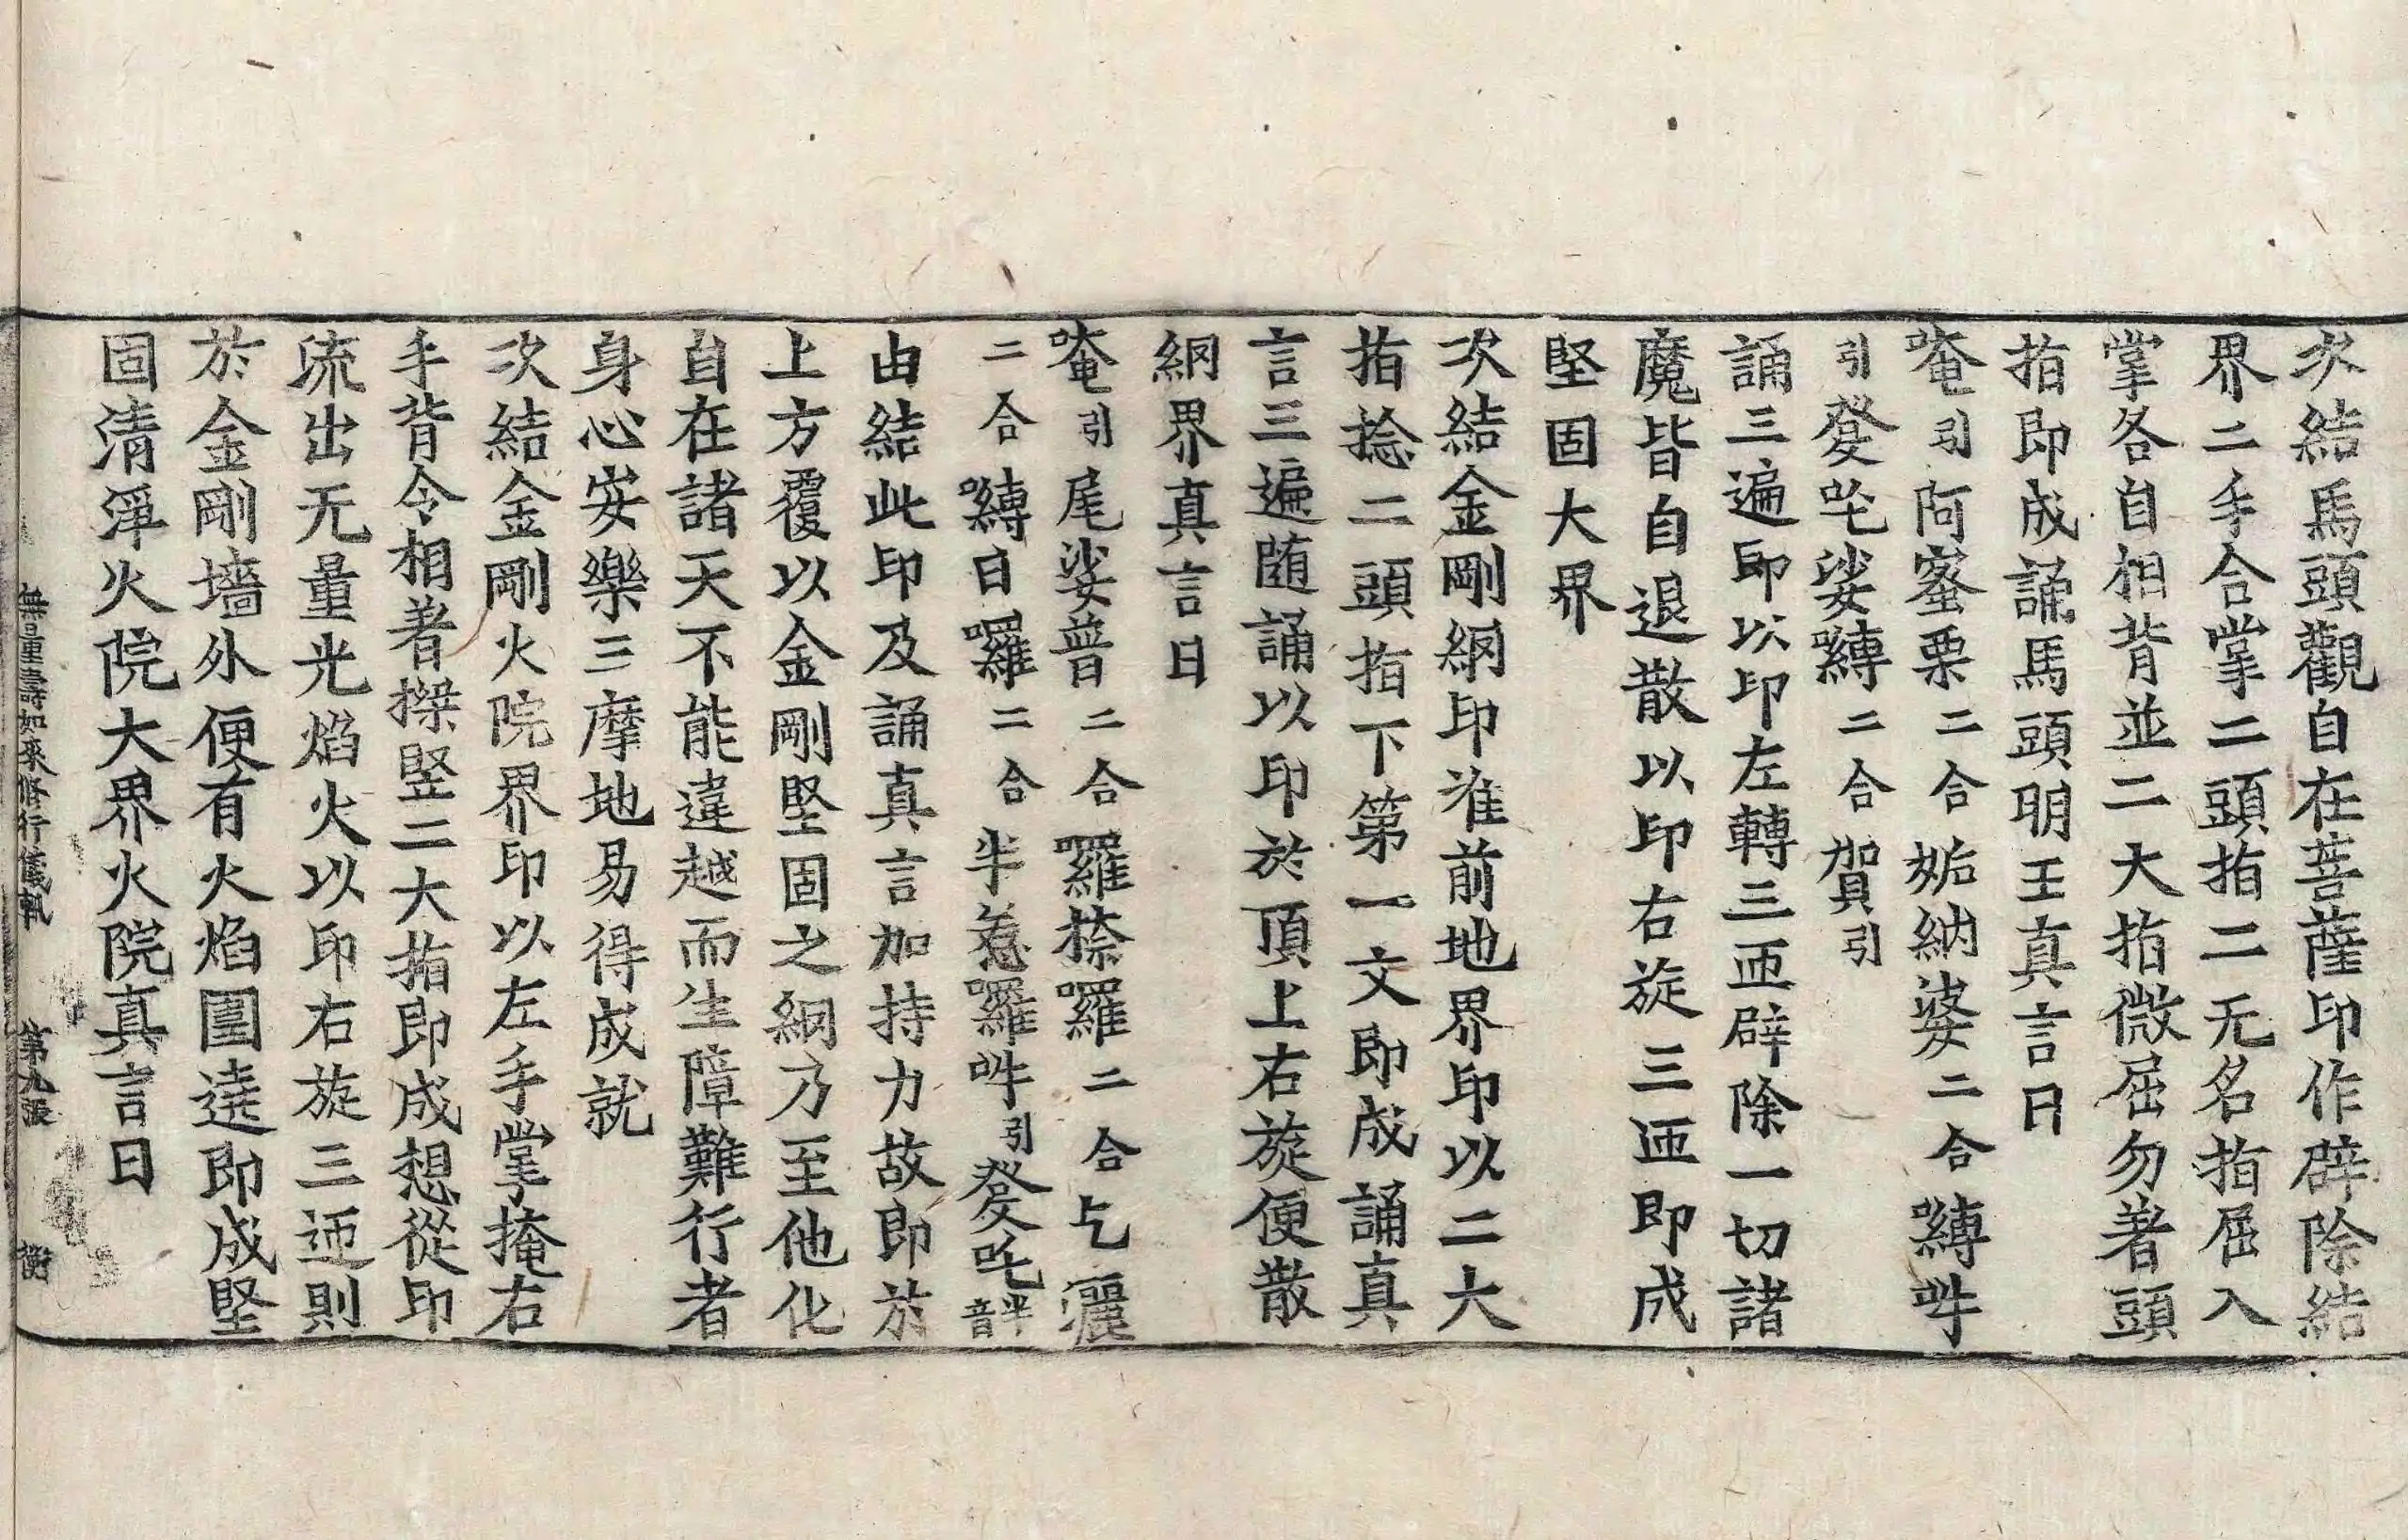 次結馬頭觀自在菩薩印作辟除結
界二手合掌二頭指二无名指屈入
掌各自相背並二大指微屈勿著頭
指即成誦馬頭明王真言曰
唵引阿蜜栗二合妬納婆二合嚩吽
引發吒娑嚩二合賀引
誦三遍即以印左轉三匝辟除一切諸
魔皆自退散以印右旋三匝即成
堅固大界
次結金剛網印准前地界印以二大
指捻二頭指下第一文即成誦真
言三遍随誦以印於頂上右旋便散
網界真言曰
唵引尾娑普二合囉捺囉二合乞灑
二合嚩日囉二合半惹囉吽引發吒半音
由結此印及誦真言加持力故即於
上方覆以金剛堅固之網乃至他化
自在諸天不能違越而生障難行者
身心安樂三摩地易得成就
次結金剛火院界印以左手掌掩右
手背令相著搩竪二大指即成想從印
流出无量光焰火以印右旋三迊則
於金剛墻外便有火焰圍遶即成堅
固清淨火院大界火院真言曰
無量壽如來修行儀軌 第九張 衡